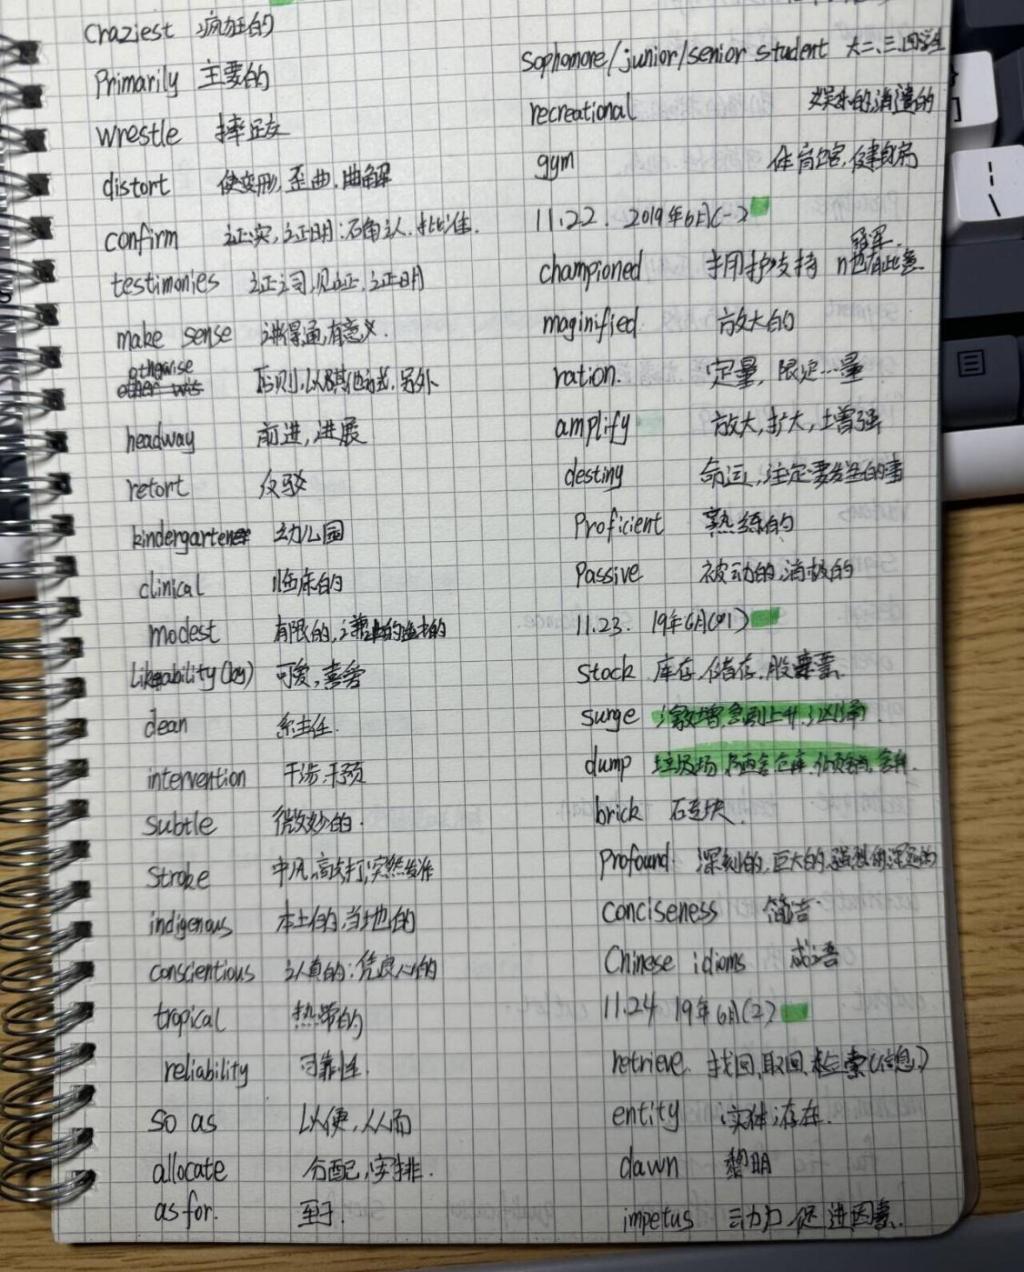 craziest 疯狂的
Primarily 主要的
wrestle 摔跤
distort 使变形,歪曲,曲解
confirm 证实,证明;确认,批准.
testimonies 证词,见证,证明
make sense 讲得通,有意义.
otherwise 否则,以其他方式,另外
headway 前进,进展
retort 反驳
kindergarten 幼儿园
clinical 临床的
modest 有限的,
Likeability(ley) 可爱,喜爱
dean 系主任.
intervention 干涉,干预
subtle 微妙的.
stroke 中风,敲打,突然发作
indigenous 本土的,当地的
conscientious 认真的;凭良心的
tropical 热带的
reliability 可靠性.
so as 以便,从而
allocate 分配,安排.
as for. 至于.
sophomore/junior/senior student 大二、三、四学生
recreational 娱乐的,消遣的
gym 体育馆,健身房
11.22. 2019年6月(-2
冠军.
championed 拥护支持 n也有此意.
maginified 放大的
ration. 定量,限定…量
amplify 放大,扩大,增强
destiny 命运,注定要发生的事
Proficient 熟练的
Passive 被动的,消极的
11.23. 19年6月(01)
stock 库存,储存.股票.
surge 激增,急剧上升,汹涌.
dump 垃圾场,
brick 砖块.
Profound 深刻的,巨大的,强烈的深远的
conciseness 简洁
Chinese idioms 成语
11.24 19年6月(2)
retrieve. 找回,取回,检索(信息)
entity 实体;存在.
dawn 黎明
impetus 动力,促进因素.